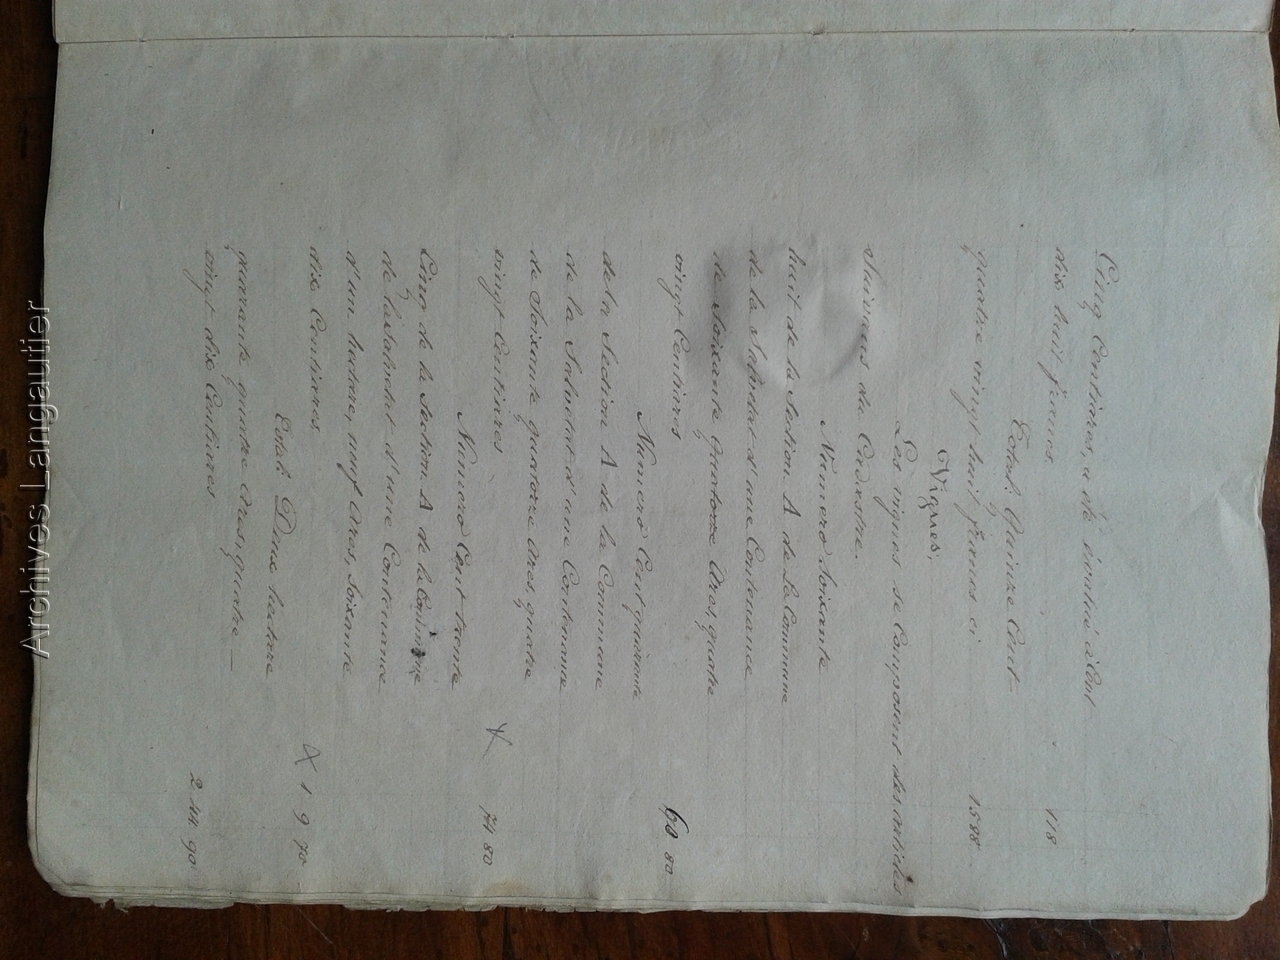 Cinq Centiares, a été évalué à Cent
dix huit francs. 118
Total: Quinze Cent
quatre vingt huit francs ci 1588
Vignes.
Les vignes se Composent des articles
Suivans du Cadastre.
Numero soixante
huit de la Section A de la Commune
de la Salvetat d'une Contenance
de soixante quatorze Ares, quatre
vingt Centiares 80
Numero Cent quarante
de la Section A de la Commune
de la Salvetat d'une Contenance
de Soixante quatorze Ares, quatre
vingt Centiares X 74 80
Numero Cent trente
Cinq de la Section A de la Commune
de la Salvetat d'une Contenance
d'un hectare, neuf Ares, soixante
dix Centiares. X 1 9 70
Total: Deux hectare
quarante quatre Ares, quatre
vingt dix Centiares 2 44 90
Archives Langautier